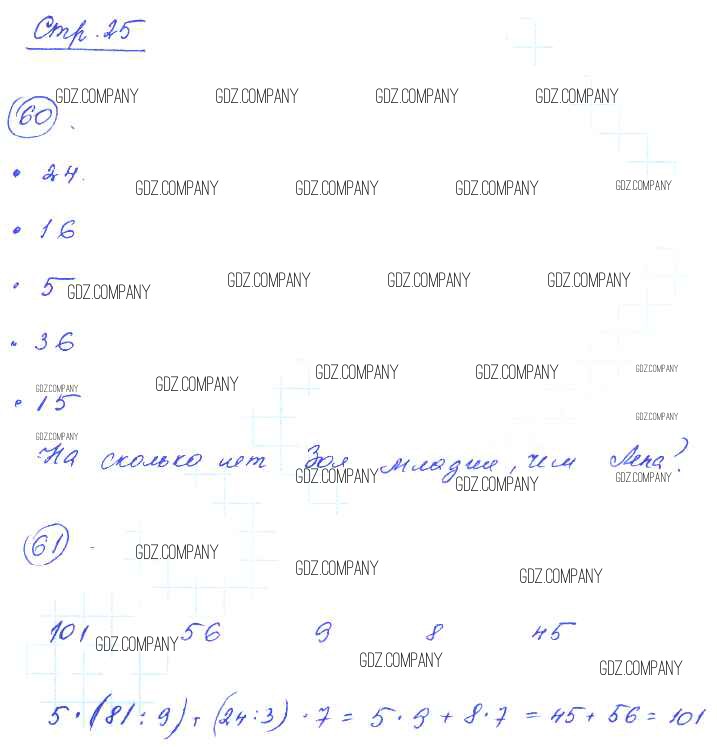 Стр. 25
GDZ.COMPANY GDZ.COMPANY GDZ.COMPANY GDZ.COMPANY
60.
• 24.
GDZ.COMPANY GDZ.COMPANY GDZ.COMPANY GDZ.COMPANY
• 16
• 5
GDZ.COMPANY GDZ.COMPANY GDZ.COMPANY GDZ.COMPANY
• 36
GDZ.COMPANY GDZ.COMPANY GDZ.COMPANY GDZ.COMPANY GDZ.COMPANY
• 15
GDZ.COMPANY
GDZ.COMPANY
На сколько лет Зоя младше, чем Лена?
GDZ.COMPANY GDZ.COMPANY GDZ.COMPANY
61
GDZ.COMPANY GDZ.COMPANY GDZ.COMPANY
101 56 9 8 45
GDZ.COMPANY GDZ.COMPANY GDZ.COMPANY
5 · (81 : 9) + (24 : 3) · 7 = 5 · 9 + 8 · 7 = 45 + 56 = 101